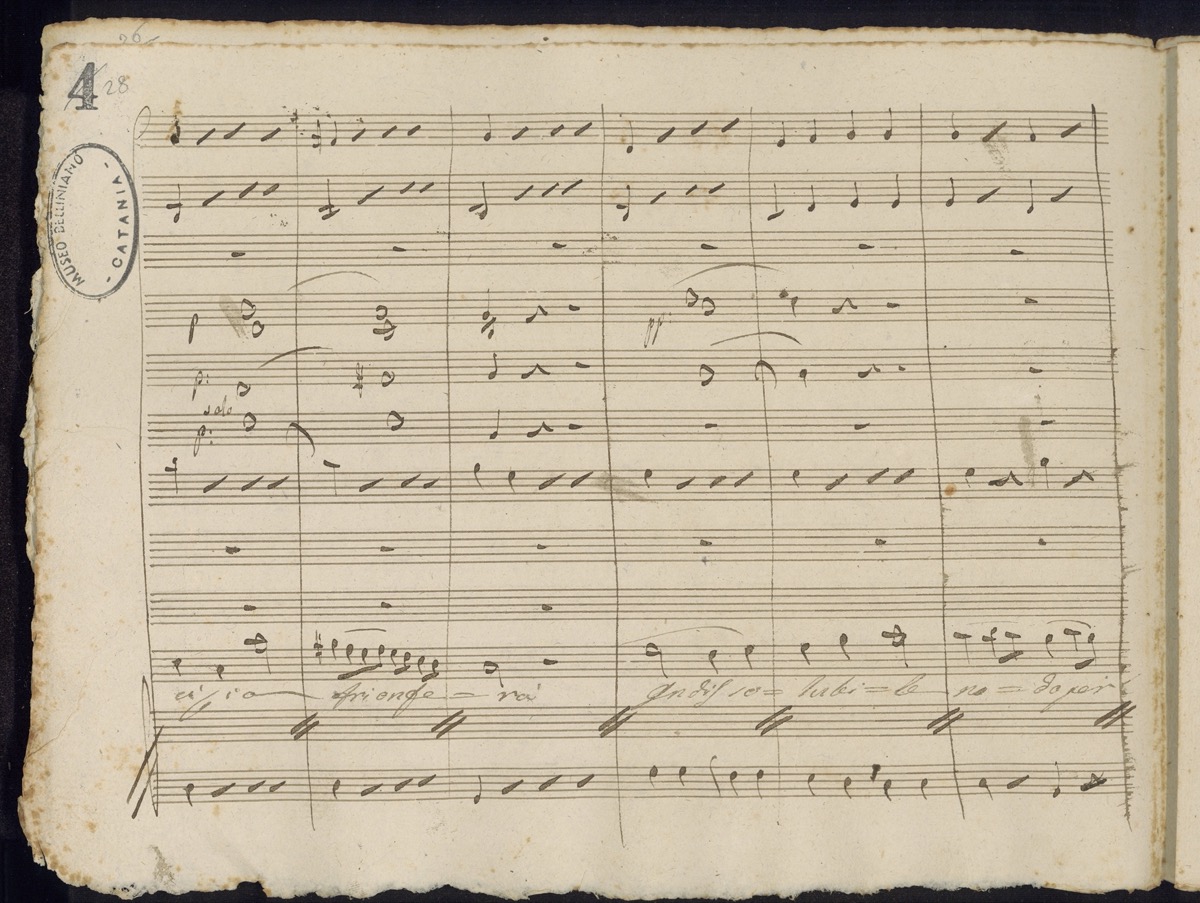 26
4 28
MUSEO BELLINIANO
- CATANIA -
p
pp.
p:
solo
p:
trionfe = rà Indisso = lubi = le no = do per